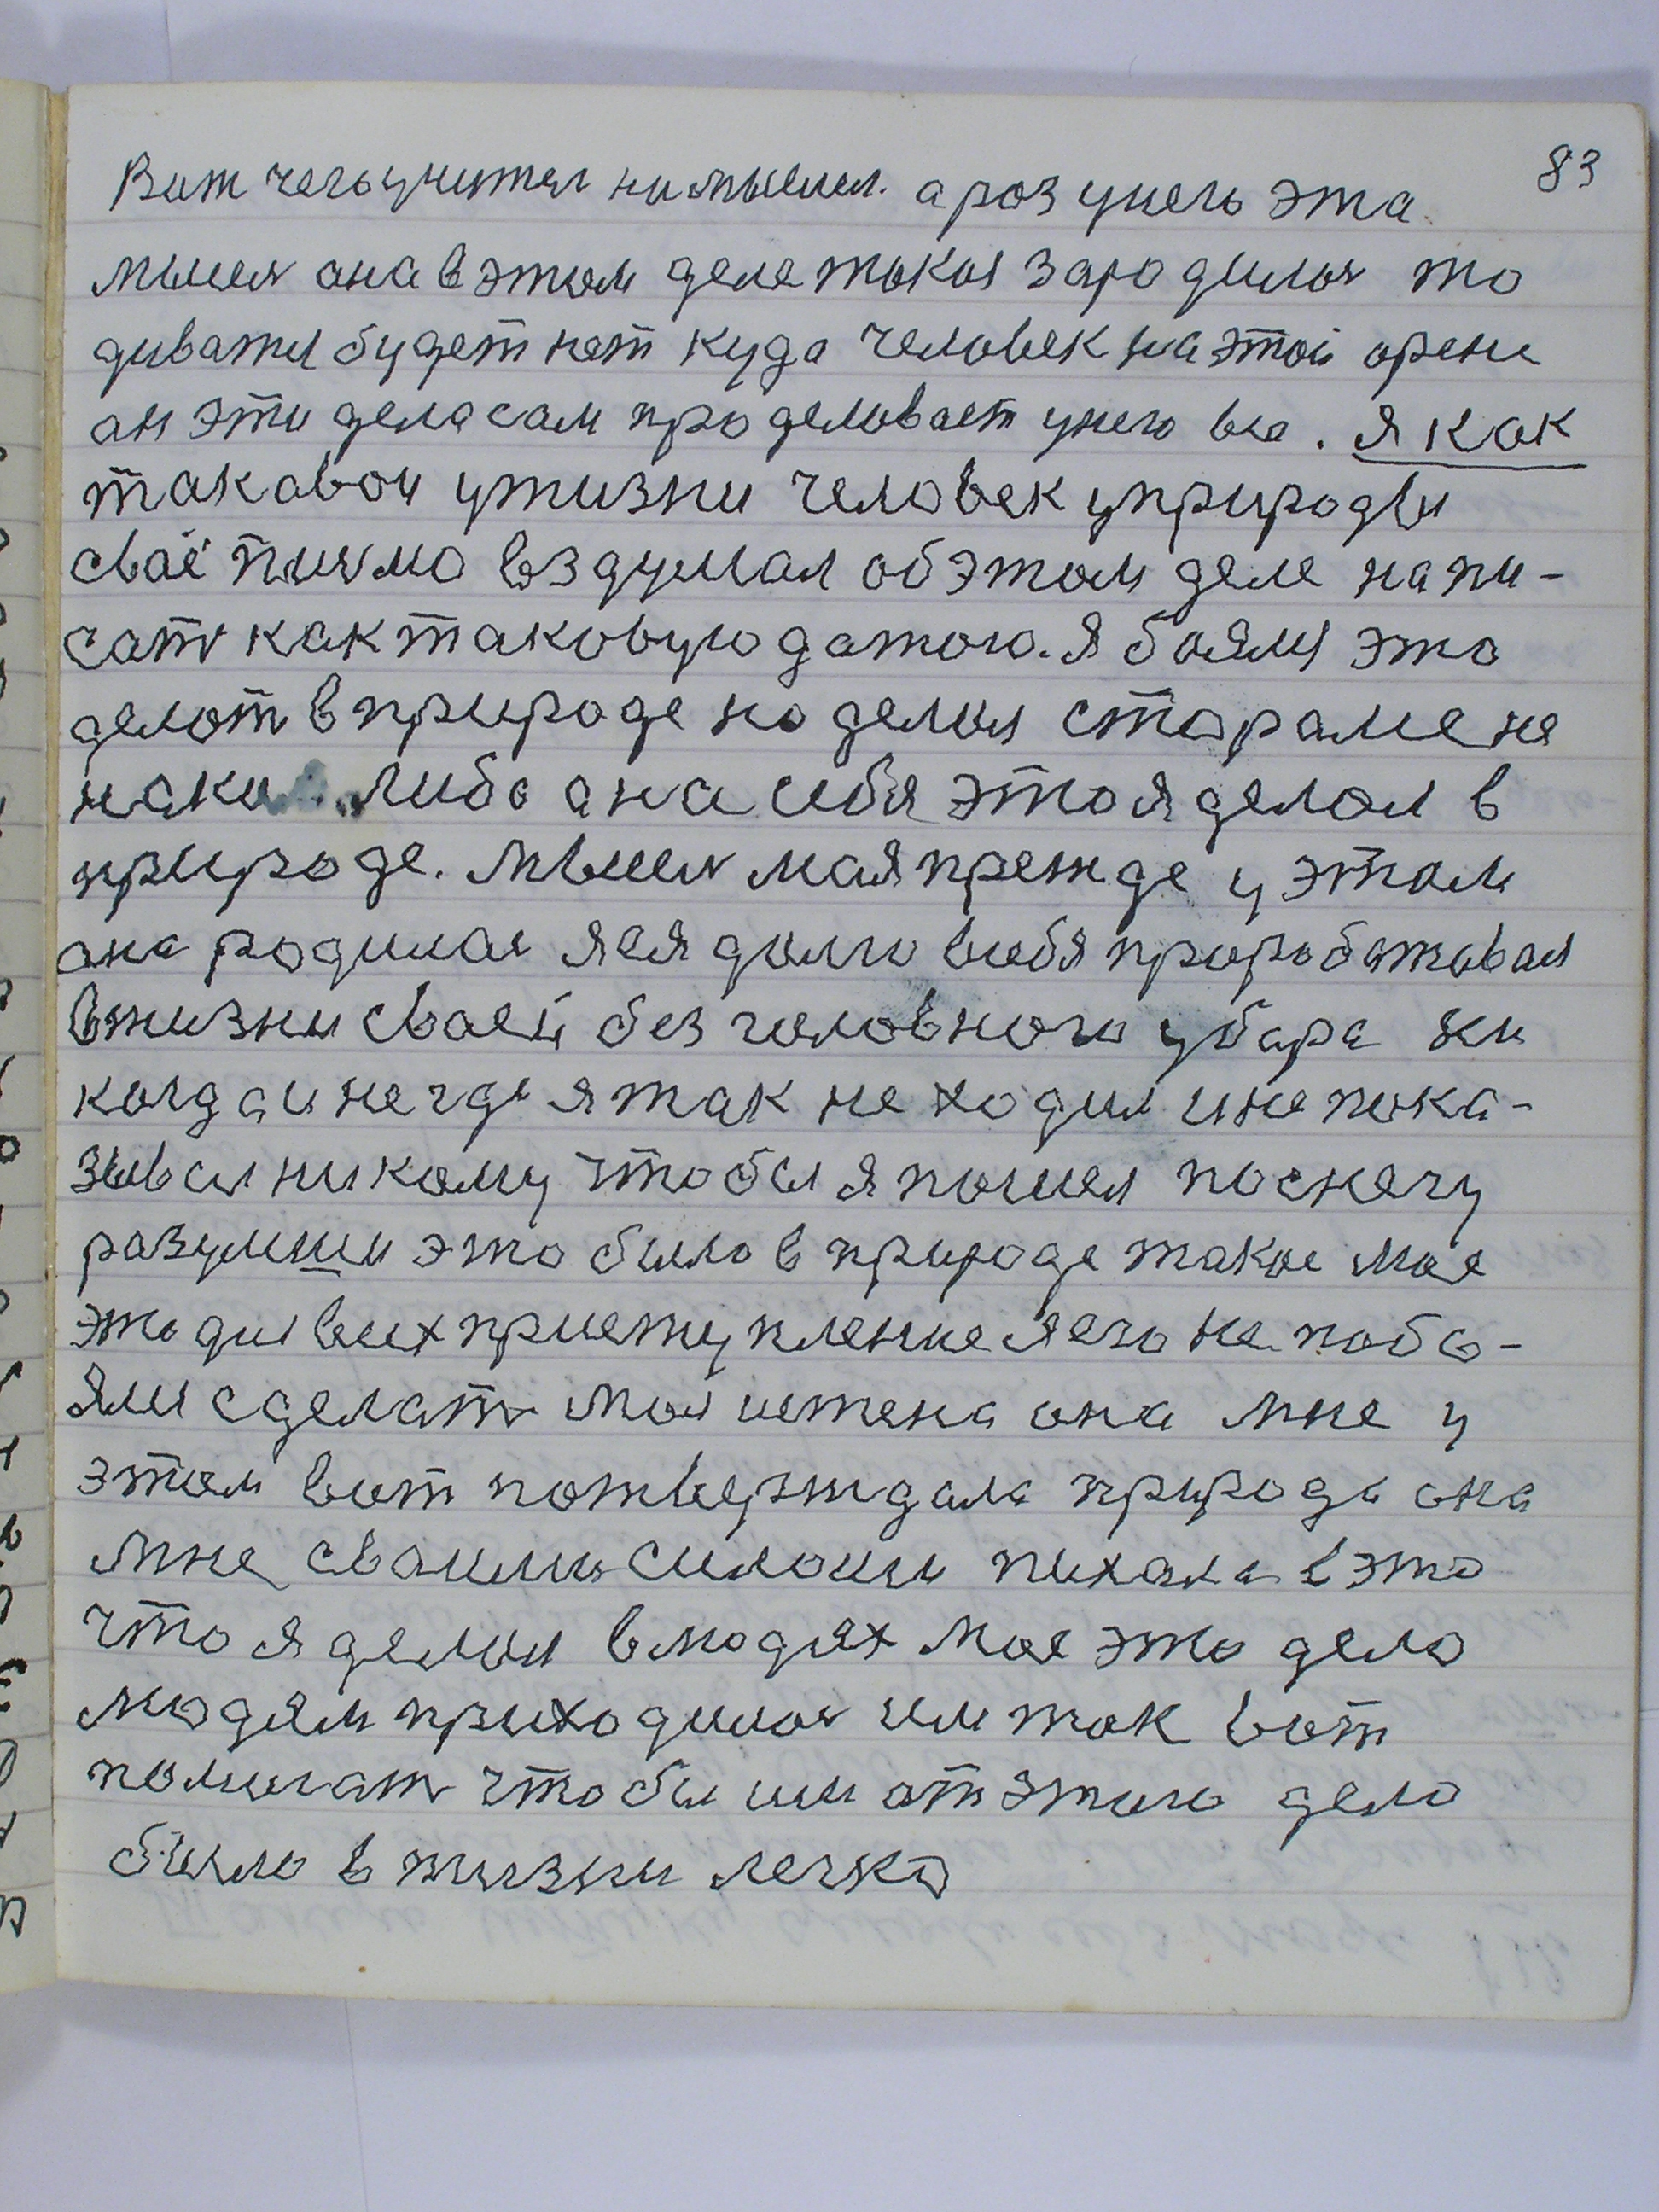 83
Вот чего учител намыслил. а роз унего эта
мысел она в этом деле такая зародилас то
диватся будет нет куда человек на этой арене
он эти дела сам проделывает унего все. я как
таковой ужизни человек уприроды
своё писмо вздумал об этом деле напи-
сать как таковую датою. я боялся это
делат в природе но делал старалсе не
на ком либо а на себя это я делал в
природе. мысел моя прежде у этом
она родилас я ея долго всебя приробатовал
вжизни своей без головного убора ни
когда и негде я так не ходил и не пока-
зывал никому чтобы я пошел по снегу
разумши это было в природе такое мое
это для всих приступление я его не побо-
ялся сделать моя истена она мне у
этом вот потверждала природа она
мне своими силоми пихала в это
что я делал влюдях мое это дело
людям приходилос им так вот
помогать чтобы им от этого дела
было в жизни легко